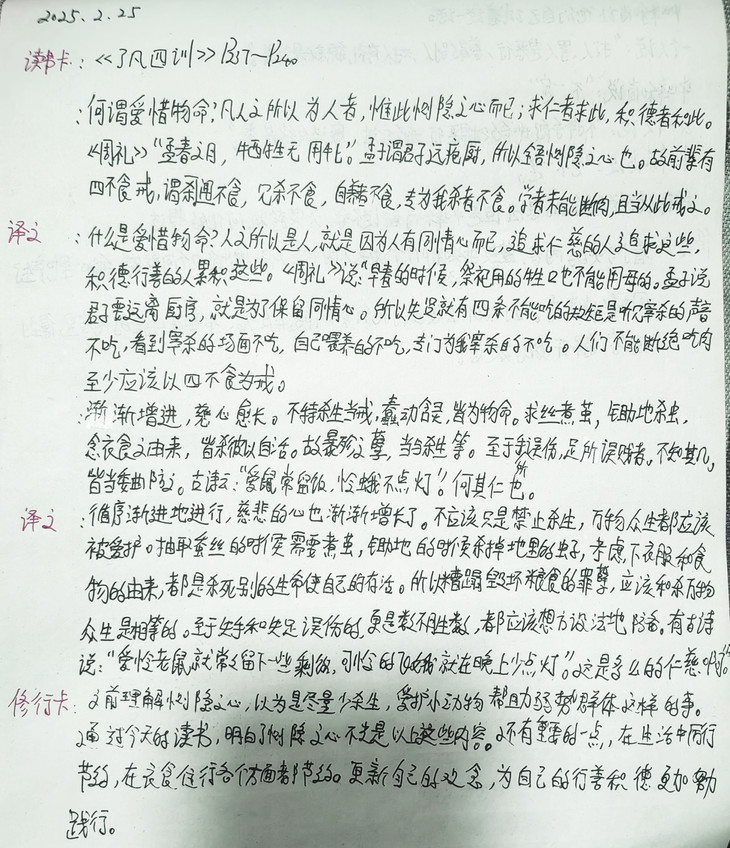 2025.2.25
读书卡：《了凡四训》P237—P240
：何谓爱惜物命？凡人之所以为人者，惟此恻隐之心而已；求仁者求此，积德者积此。
《周礼》"孟春之月，牺牲无用牝"。孟子谓君子远庖厨，所以全吾恻隐之心也。故前辈有
四不食戒，谓闻杀不食，见杀不食，自养不食，专为我杀者不食。学者未能断肉，且当从此戒之。
译文：什么是爱惜物命？人之所以是人，就是因为人有同情心而已，追求仁慈的人追求这些，
积德行善的人累积这些。《周礼》说："早春的时候，祭祀用的牲口也不能用母的。孟子说
君子要远离厨房，就是为了保留同情心。所以先辈就有四条不能吃的规矩是听见宰杀的声音
不吃，看到宰杀的场面不吃，自己喂养的不吃，专门为我宰杀的不吃。人们不能断绝吃肉
至少应该以四不食为戒。
：渐渐增进，慈心愈长。不特杀生当戒，蠢动含灵，皆为物命。求丝煮茧，锄地杀虫，
念衣食之由来，皆杀彼以自活。故暴殄之孽，当与杀生等。至于手误伤，足所误践者，不知其几，
皆当委曲防之。古诗云："爱鼠常留饭，怜蛾不点灯"。何其仁也。
译文：循序渐进地进行，慈悲的心也渐渐增长了。不应该只是禁止杀生，万物众生都应该
被爱护。抽取蚕丝的时候需要煮茧，锄地的时候杀掉地里的虫子，考虑下衣服和食
物的由来，都是杀死别的生命使自己的存活。所以糟蹋毁坏粮食的罪孽，应该和杀万物
众生是相等的。至于失手和失足误伤的，更是数不胜数，都应该想方设法地防备。有古诗
说："爱怜老鼠就常常留下一些剩饭，可怜的飞蛾就在晚上少点灯"。这是多么的仁慈啊！
修行卡：1.之前理解恻隐之心，以为是尽量少杀生，爱护小动物帮助弱势群体这样的事。
2.通过今天的读书，明白了恻隐之心不光是以上这些内容。2.还有重要的一点，在生活中厉行
节约，在衣食住行各个方面都节约。更新自己的观念，为自己的行善积德更加努力
践行。